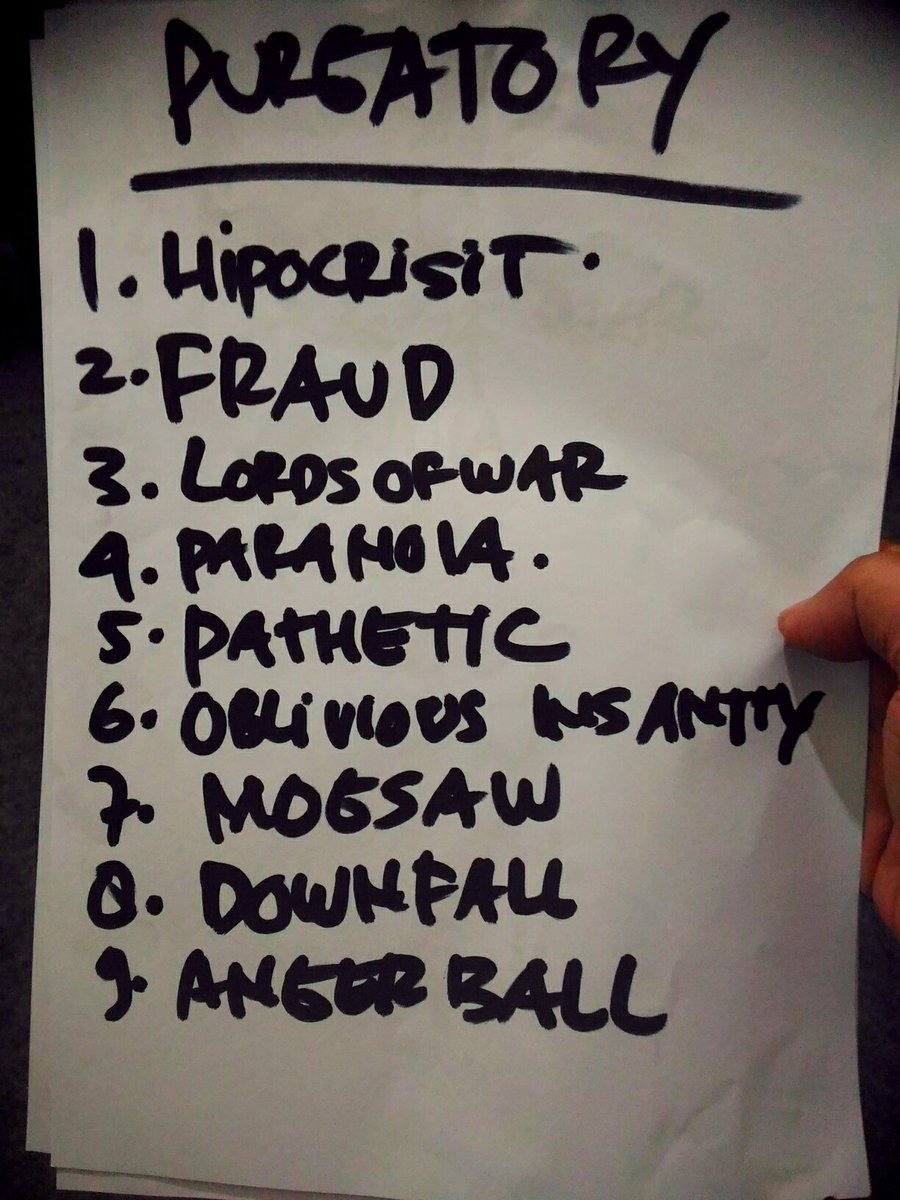 PURGATORY
1. HiPOCRiSiT.
2. FRAUD
3. LORDS OF WAR
4. PARANOIA.
5. PATHETIC
6. OBLiVIOUS INSANITY
7. MOGSAW
8. DOWNFALL
9. ANGER BALL